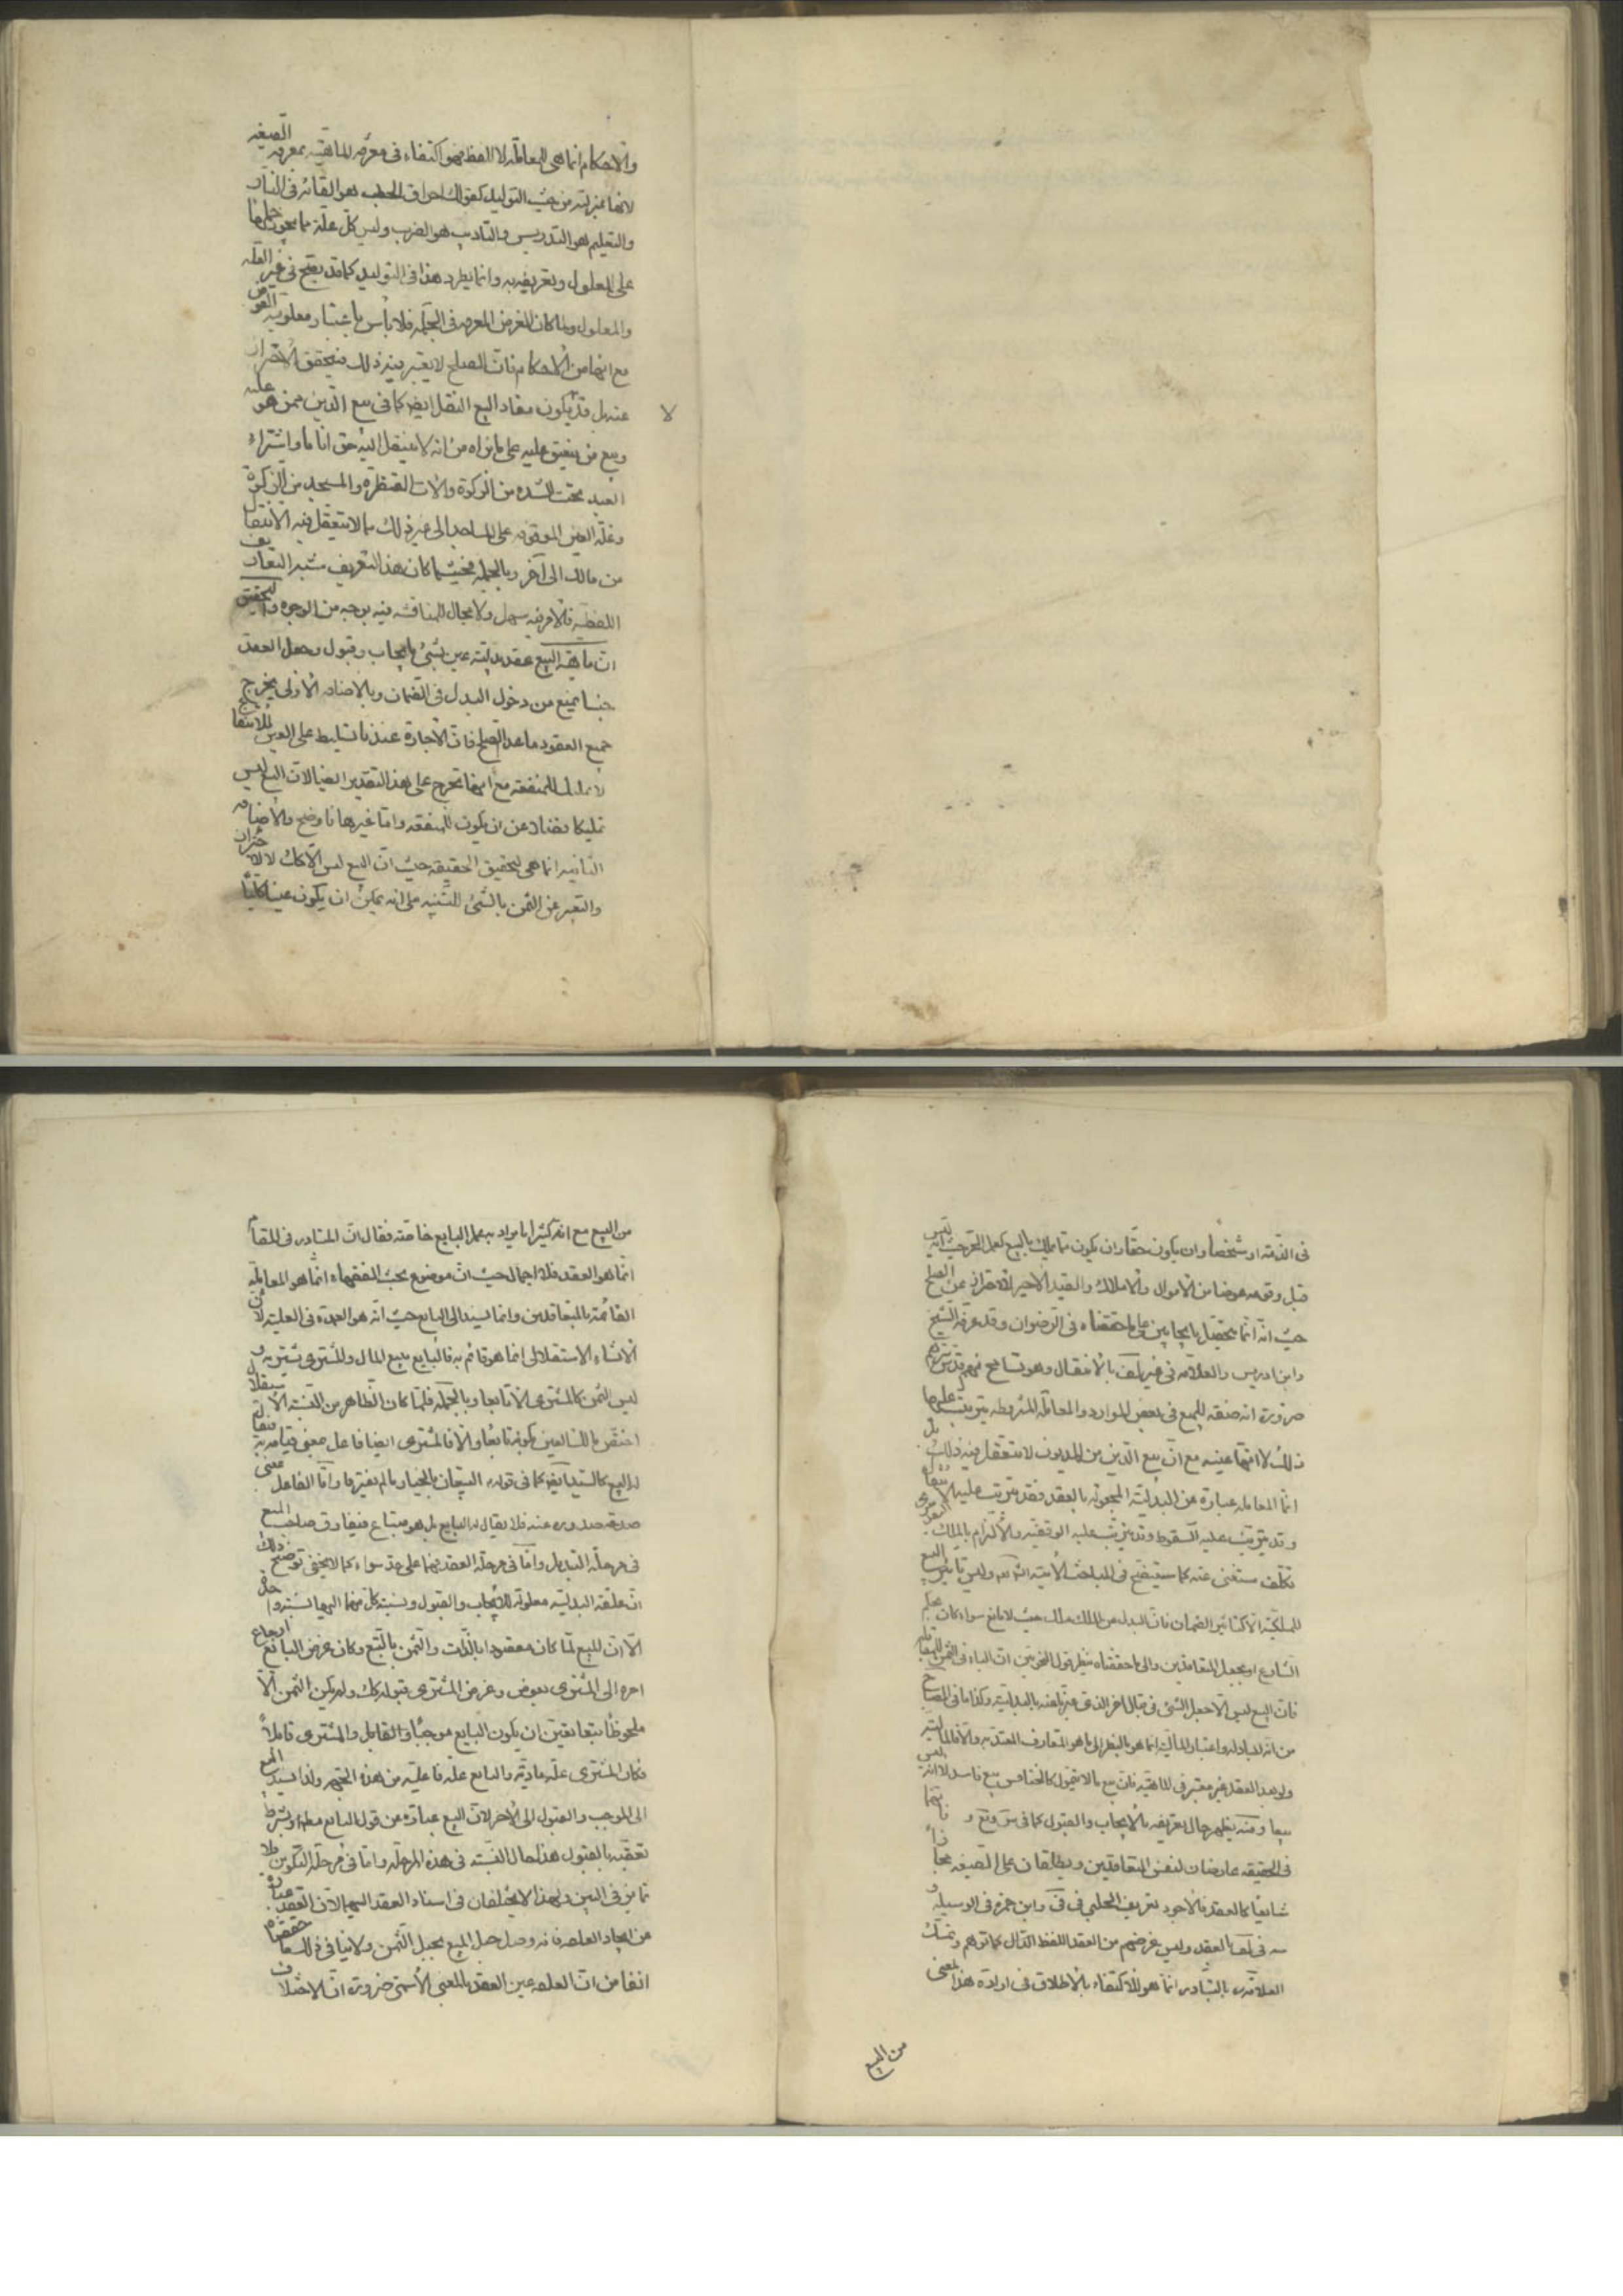 والاحكام انما هي للمعاملة لا اللفظ فهو اكتفاء في معرفة الماهية بمعرفة الصيغة
لانها بمنزلته من حيث التوليد كقولك احراق الحطب هو القائه في النار
والتعليم هو التدريس والتاديب هو الضرب وليس كل علة مما يجوز حملها
على المعلول وتعريفه به وانما يطرد هذا في التوليد كما قد يقع في غير العلة
والمعلول ولما كان الغرض المعرفة في الجملة فلا بأس باعتبار معلومية العوض
مع انها من الاحكام فان الصلح لا يعتبر فيه ذلك فيتحقق الاحتراز
عنه بل قد يكون مفاد البيع النقل ايضا كما في بيع الدين ممن هو عليه
لا
وبيع من ينعتق عليه على ما نراه من انه لا ينتقل اليه حق انا ما واشتراء
العبيد تحت الشدة من الزكوة والات القنطرة والمسجد من الزكوة
وغلة العين الموقوفة على المساجد الى غير ذلك مما لا يتعقل فيه الانتقال
من مالك الى آخر وبالجملة فحيثما كان هذا التعريف شبه التعاريف
اللفظية فالامر فيه سهل ولا مجال للمناقشة فيه بوجه من الوجوه والتحقيق
ان ماهية البيع عقد بدلية عين بشئ بايجاب وقبول وجعل العقد
جنسا يمنع من دخول البدل في الضمان وبالاضافة الاولى يخرج
جميع العقود ما عدا الصلح فان الاجارة عندنا تسليط على العين للانتفاع
لا تمليك المنفعة مع انها تخرج على هذا التقدير ايضا لان البيع ليس
تمليكا فضلا عن ان يكون للمنفعة واما غيرها فاوضح والاضافة
الثانية انما هي لتحقيق الحقيقة حيث ان البيع ليس الا كك لا للاحتراز
والتعبير عن الثمن بالشئ للتنبيه على انه يمكن ان يكون عينا كليا
في الذمة او شخصا وان يكون حقا وان يكون مما يملك بالبيع كعمل الحر حيث انه ليس
قبل وقوعه عوضا من الاموال والاملاك والقيد الاخير للاحتراز عن الصلح
حيث انه انما يحصل بايجابين على ما حققناه في الرضوان وقد عرفه الشيخ
وابن ادريس والعلامة في غير لف بالانتقال وهو تسامح منهم قدس سرهم
ضرورة انه صفة للمبيع في بعض الموارد والمعاملة المشروطة يترتب عليها
ذلك لا انها عينه مع ان بيع الدين من المديون لا يتعقل فيه ذلك بل
انما المعاملة عبارة عن البدلية المجعولة بالعقد فقد يترتب عليه الانتقال
وقد يترتب عليه السقوط وقد يترتب عليه الوقفية والالتزام بالملك
تكلف مستغنى عنه كما سيتضح في المباحث الآتية انشاء الله وليس تأثير البيع
للملكية الا كتاثير الضمان فان البدل عن الملك ملك حيث لا مانع سواء كان بجعل
الشارع او بجعل المتعاقدين والى ما حققناه ينظر قول النحويين ان الباء في الثمن للمقابلة
فان البيع ليس الا جعل الشئ في قبال اخر الذي عبرنا عنه بالبدلية وكذا ما في المصباح
من انه المبادلة واعتبار المالية انما هو بالنظر الى ما هو المتعارف المعتد به والا فالمالية
ولو بعد العقد غير معتبر في الماهية فان بيع ما لا يتمول كالخنافس بيع فاسد لا انه ليس
بيعا ومنه يظهر حال تعريفه بالايجاب والقبول كما في س وقع و فانهما
في الحقيقة عارضان لنفس المتعاقدين ويطلقان على الصيغة مجازا
شايعا كالعقد فالاجود تعريف الحلبي في في وابن حمزة في الوسيلة و
مه في لف بالعقد وليس غرضهم من العقد اللفظ الدال كما توهم وتمسك
العلامة ره بالتبادر انما هو للاكتفاء بالاطلاق في ارادة هذا المعنى
من البيع
من البيع مع انه كثيرا ما يراد به عمل البايع خاصة فقال ان المتبادر في المقام
انما هو العقد فلا اجمال حيث ان موضوع بحث الفقهاء انما هو المعاملة
القائمة بالمتعاقدين وانما يسند الى البايع حيث انه هو العمدة في العلية لان
الانشاء الاستقلالي انما هو قائم به فالبايع يبيع المال والمشتري يشتريه و
ليس الثمن كالمشترى الا تابعا وبالجملة فلما كان الظاهر من النسبة الاستقلال
اختص مالك العين بكونه بايعا والا فالمشتري ايضا فاعل بمعنى قيامه به فيقال
له البيع كالسيد ايضا كما في قوله البيعان بالخيار ما لم يفترقا واما الفاعل بمعنى
صدقه صدوره عنه فلا يقال له البايع بل هو مبتاع فيفارق صاحب المبيع
في مرحلة التبديل واما في مرحلة العقد فهما على حد سواء كما لا يخفى توضيح ذلك
ان علقة البدلية معلولة للايجاب والقبول ونسبة كل منهما اليها نسبة واحدة
الا ان المبيع لما كان مقصودا بالذات والثمن بالتبع وكان غرض البائع ارجاع
امره الى المشتري بعوض وغرض المشتري قبوله كك ولم يكن الثمن الا
ملحوظا تبعا تعين ان يكون البايع موجبا والقابل والمشتري قابلا
فكان المشتري علة مادية والبايع علة فاعلية من هذه الجهة ولذا يسند البيع
الى الموجب والقبول الى الاخر لان البيع عبارة عن قول البايع مطلقا او بشرط
تعقبه بالقبول هذا حال النسبة في هذه المرحلة واما في مرحلة التكوين فلا
تمايز في البين ولهذا لا يختلفان في اسناد العقد اليهما لان العقد عبارة
عن ايجاد العلقة فانه وصل حبل المبيع بحبل الثمن ولا ينافي ذلك ما حققناه
انفا من ان العلقة عين العقد بالمعنى الاسمي ضرورة ان الاختلاف